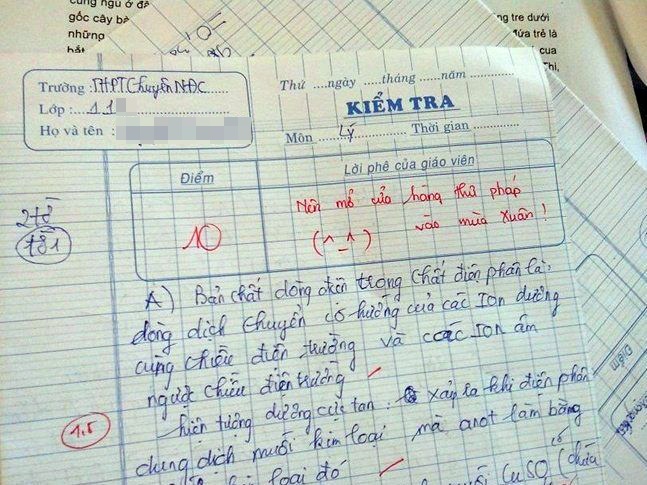 cung ngủ ở đâ
gốc cây bà
những
hất
ng tre dưới
đứa trẻ là
cua
Thi,
Trường : THPT Chuyên NĐC
Lớp : 11
Họ và tên :
Thứ ....ngày .....tháng .....năm
KIỂM TRA
Môn Lý Thời gian
Điểm
Lời phê của giáo viên
10
Nên mở cửa hàng thư pháp
vào mùa xuân !
(^_^)
2+8
181
A) Bản chất dòng điện trong chất điện phân là:
dòng dịch chuyển có hướng của các ION dương
cùng chiều điện trường và các ION âm
ngược chiều điện trường
hiện tượng dương cực tan : xảy ra khi điện phân
1,5
dung dịch muối kim loại mà anot làm bằng
loại đó
muối CuSO (chứa
Điểm